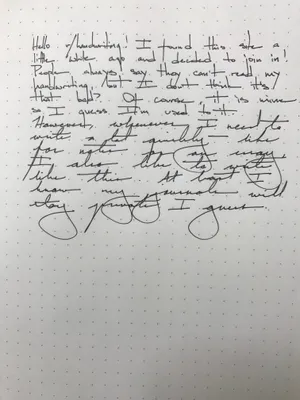 Hello r/handwriting! I found this site a
little while ago and decided to join in!
People always say they can't read my
handwriting, but I don't think it's
that bad? Of course it is mine
so I guess I'm used to it.
However, whenever I need to
write a lot quickly - like
for notes or an essay,
I also like to write
like this. At least I
know my journal will
stay private I guess.